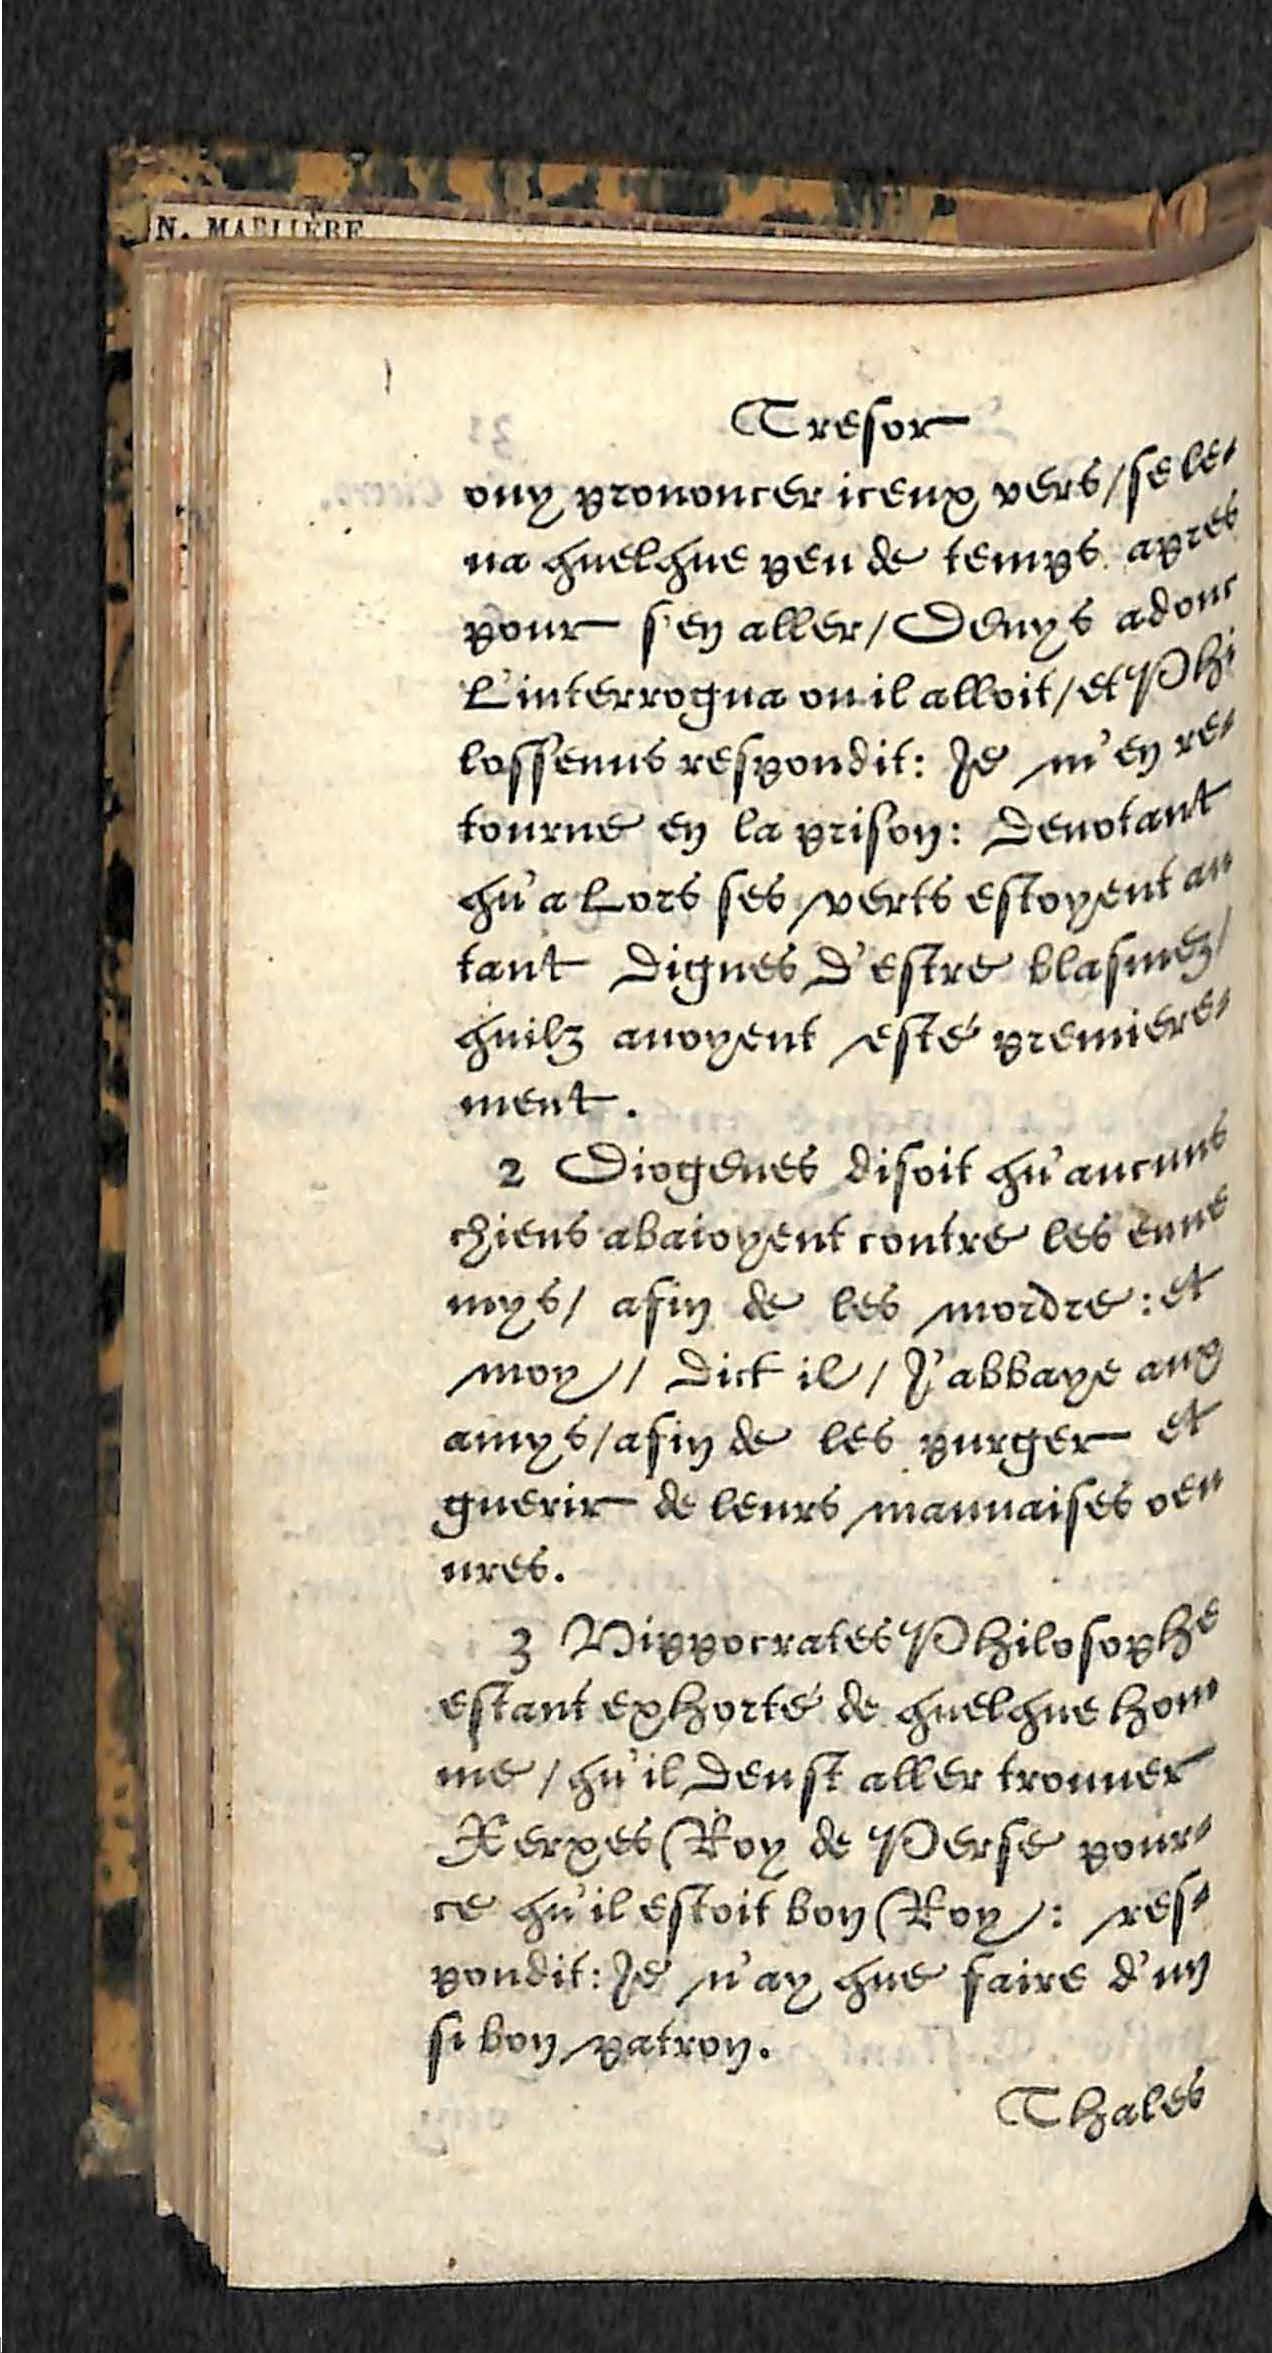 N. MARLIÈRE
Tresor
ouy prononcer iceux vers/ se le-
ua quelque peu de temps apres
pour s'en aller/ Denys adonc
L'interrogua ou il alloit/ et Phi
lossenus respondit: Je m'en re-
tourne en la prison: Denotant
qu'a Lors ses verts estoyent au
tant Dignes D'estre blasmez/
quilz auoyent esté premiere-
ment.
2 Diogenes disoit qu'aucuns
chiens abaioyent contre les enne
mys/ afin de les mordre: et
moy/ Dict il/ J'abbaye aux
amys/ afin de les purger et
guerir de leurs mauuaises oeu
ures.
3 Hippocrates Philosophe
estant exhorté de quelque hom
me/ qu'il Deust aller trouuer
Xerxes Roy de Perse pour-
ce qu'il estoit bon Roy: res-
pondit: Je n'ay que faire d'un
si bon patron.
Thales